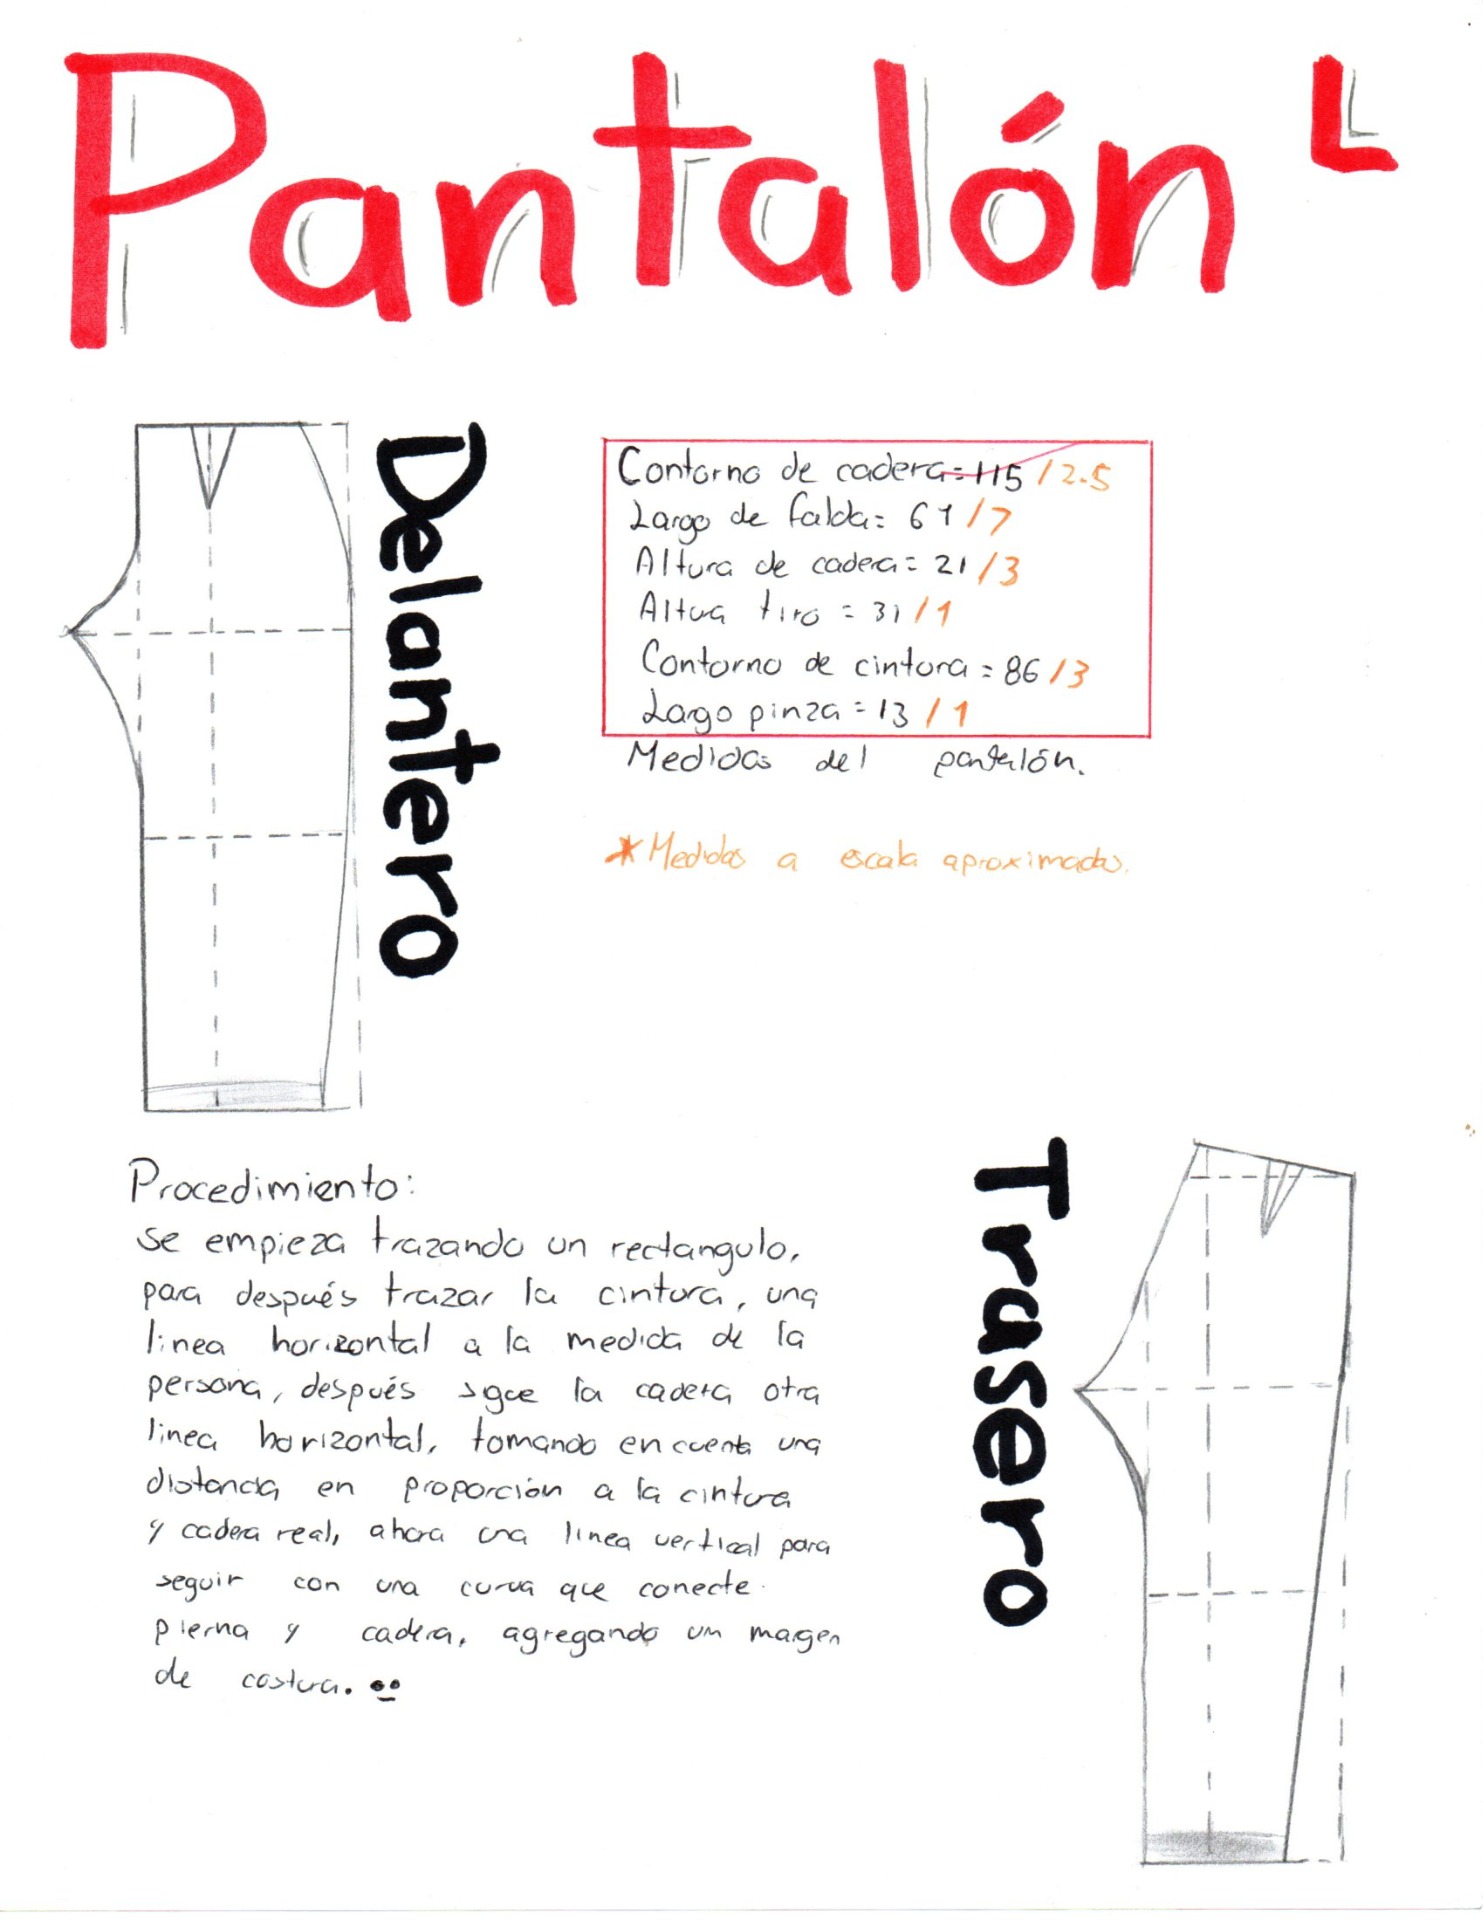 Pantalón L
Delantero
Contorno de cadera=115 /2.5
Largo de falda= 61 /7
Altura de cadera= 21 /3
Altua tiro = 31 /1
Contorno de cintura = 86 /3
Largo pinza = 13 /1
Medidas del pantalón.
*Medidas a escala aproximada.
Procedimiento:
se empieza trazando un rectangulo,
para después trazar la cintura, una
linea horizontal a la medida de la
persona, después sigue la cadera otra
linea horizontal, tomando en cuenta una
distancia en proporción a la cintura
y cadera real, ahora una linea vertical para
seguir con una curva que conecte
pierna y cadera, agregando un margen
de costura.
Trasero